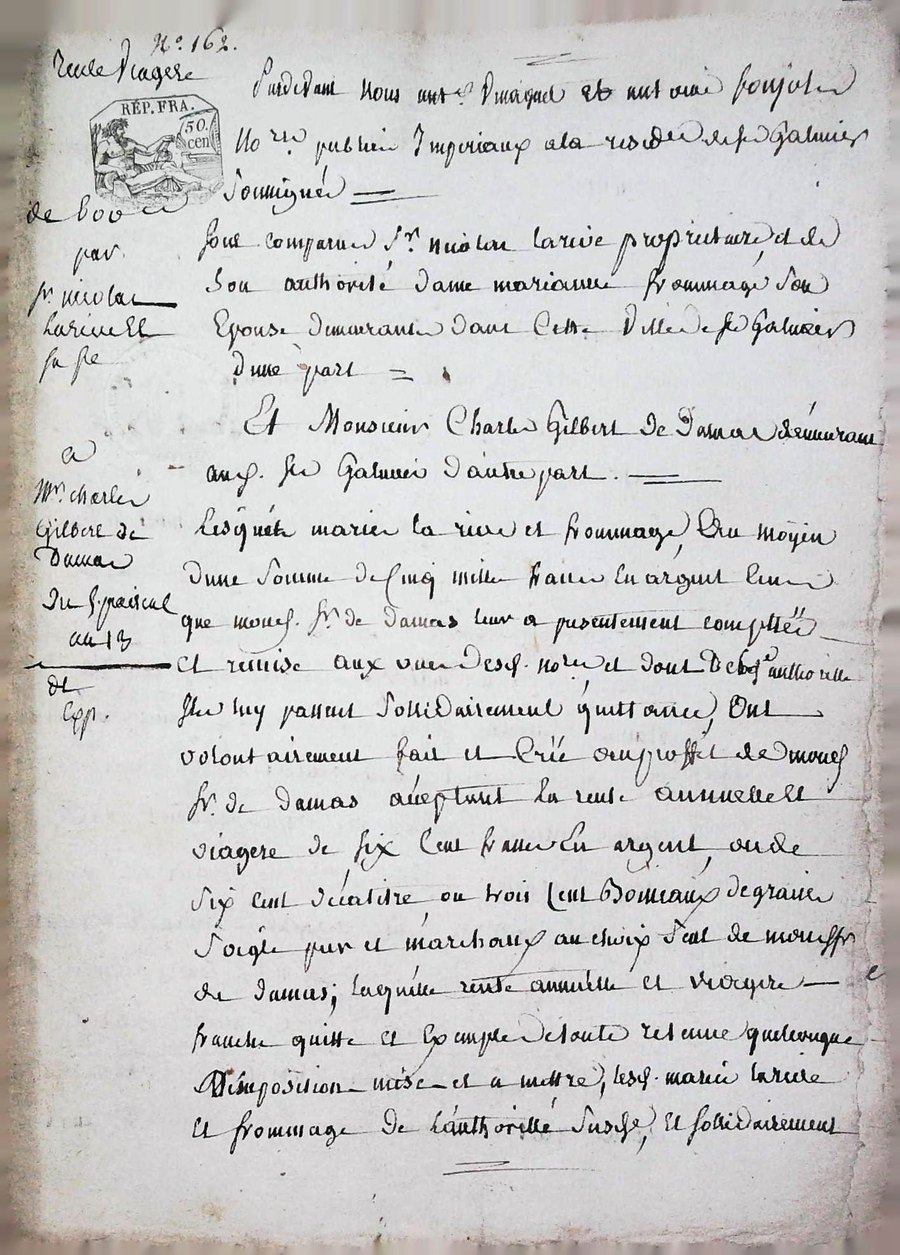 N.o 162.
rente Viagere
RÉP. FRA.
50.
cen
de 600
par
sr. nicolas
Larive Et
sa fe
a
Mr. charles
Gilbert de
Damas
Du 5. prairial
an 13
dt
Exp.
Pardevant Nous ant. et antoine
No.res publics Imperiaux a la residce de st Galmier
soussignés
sont comparus Sr. nicolas larive proprietaire et de
son authorité dame marianne frommage son
Epouse demeurants dans Cette Ville de st Galmier
d'une part
Et Monsieur Charles Gilbert de Damas démeurant
aud. st Galmier d'autre part.
Lesquéls mariés la rive et frommage, Au moÿen
d'une somme de Cinq mille francs En argent
que mond. sr. de damas leur a présentement comptéé
et remise aux vues desd. nores et dont de lad.e authorité
Ils luy passent sollidairement quittance, Ont
volontairement fait et Créé au proffit de mond
sr. de damas acceptant La rente annuelle Et
viagere de six Cent francs En argent, ou de
six cent décalitre ou trois Cent Boisseaux de graine
soigle pur et marchand au choix seul de mondsr
de damas; laquélle rente annuélle et viagere
franche quitte et Exempte de toute retenue quelconque
d'imposition mise et a mettre, lesd. mariés larive
et frommage de L'authorité susde, et sollidairement